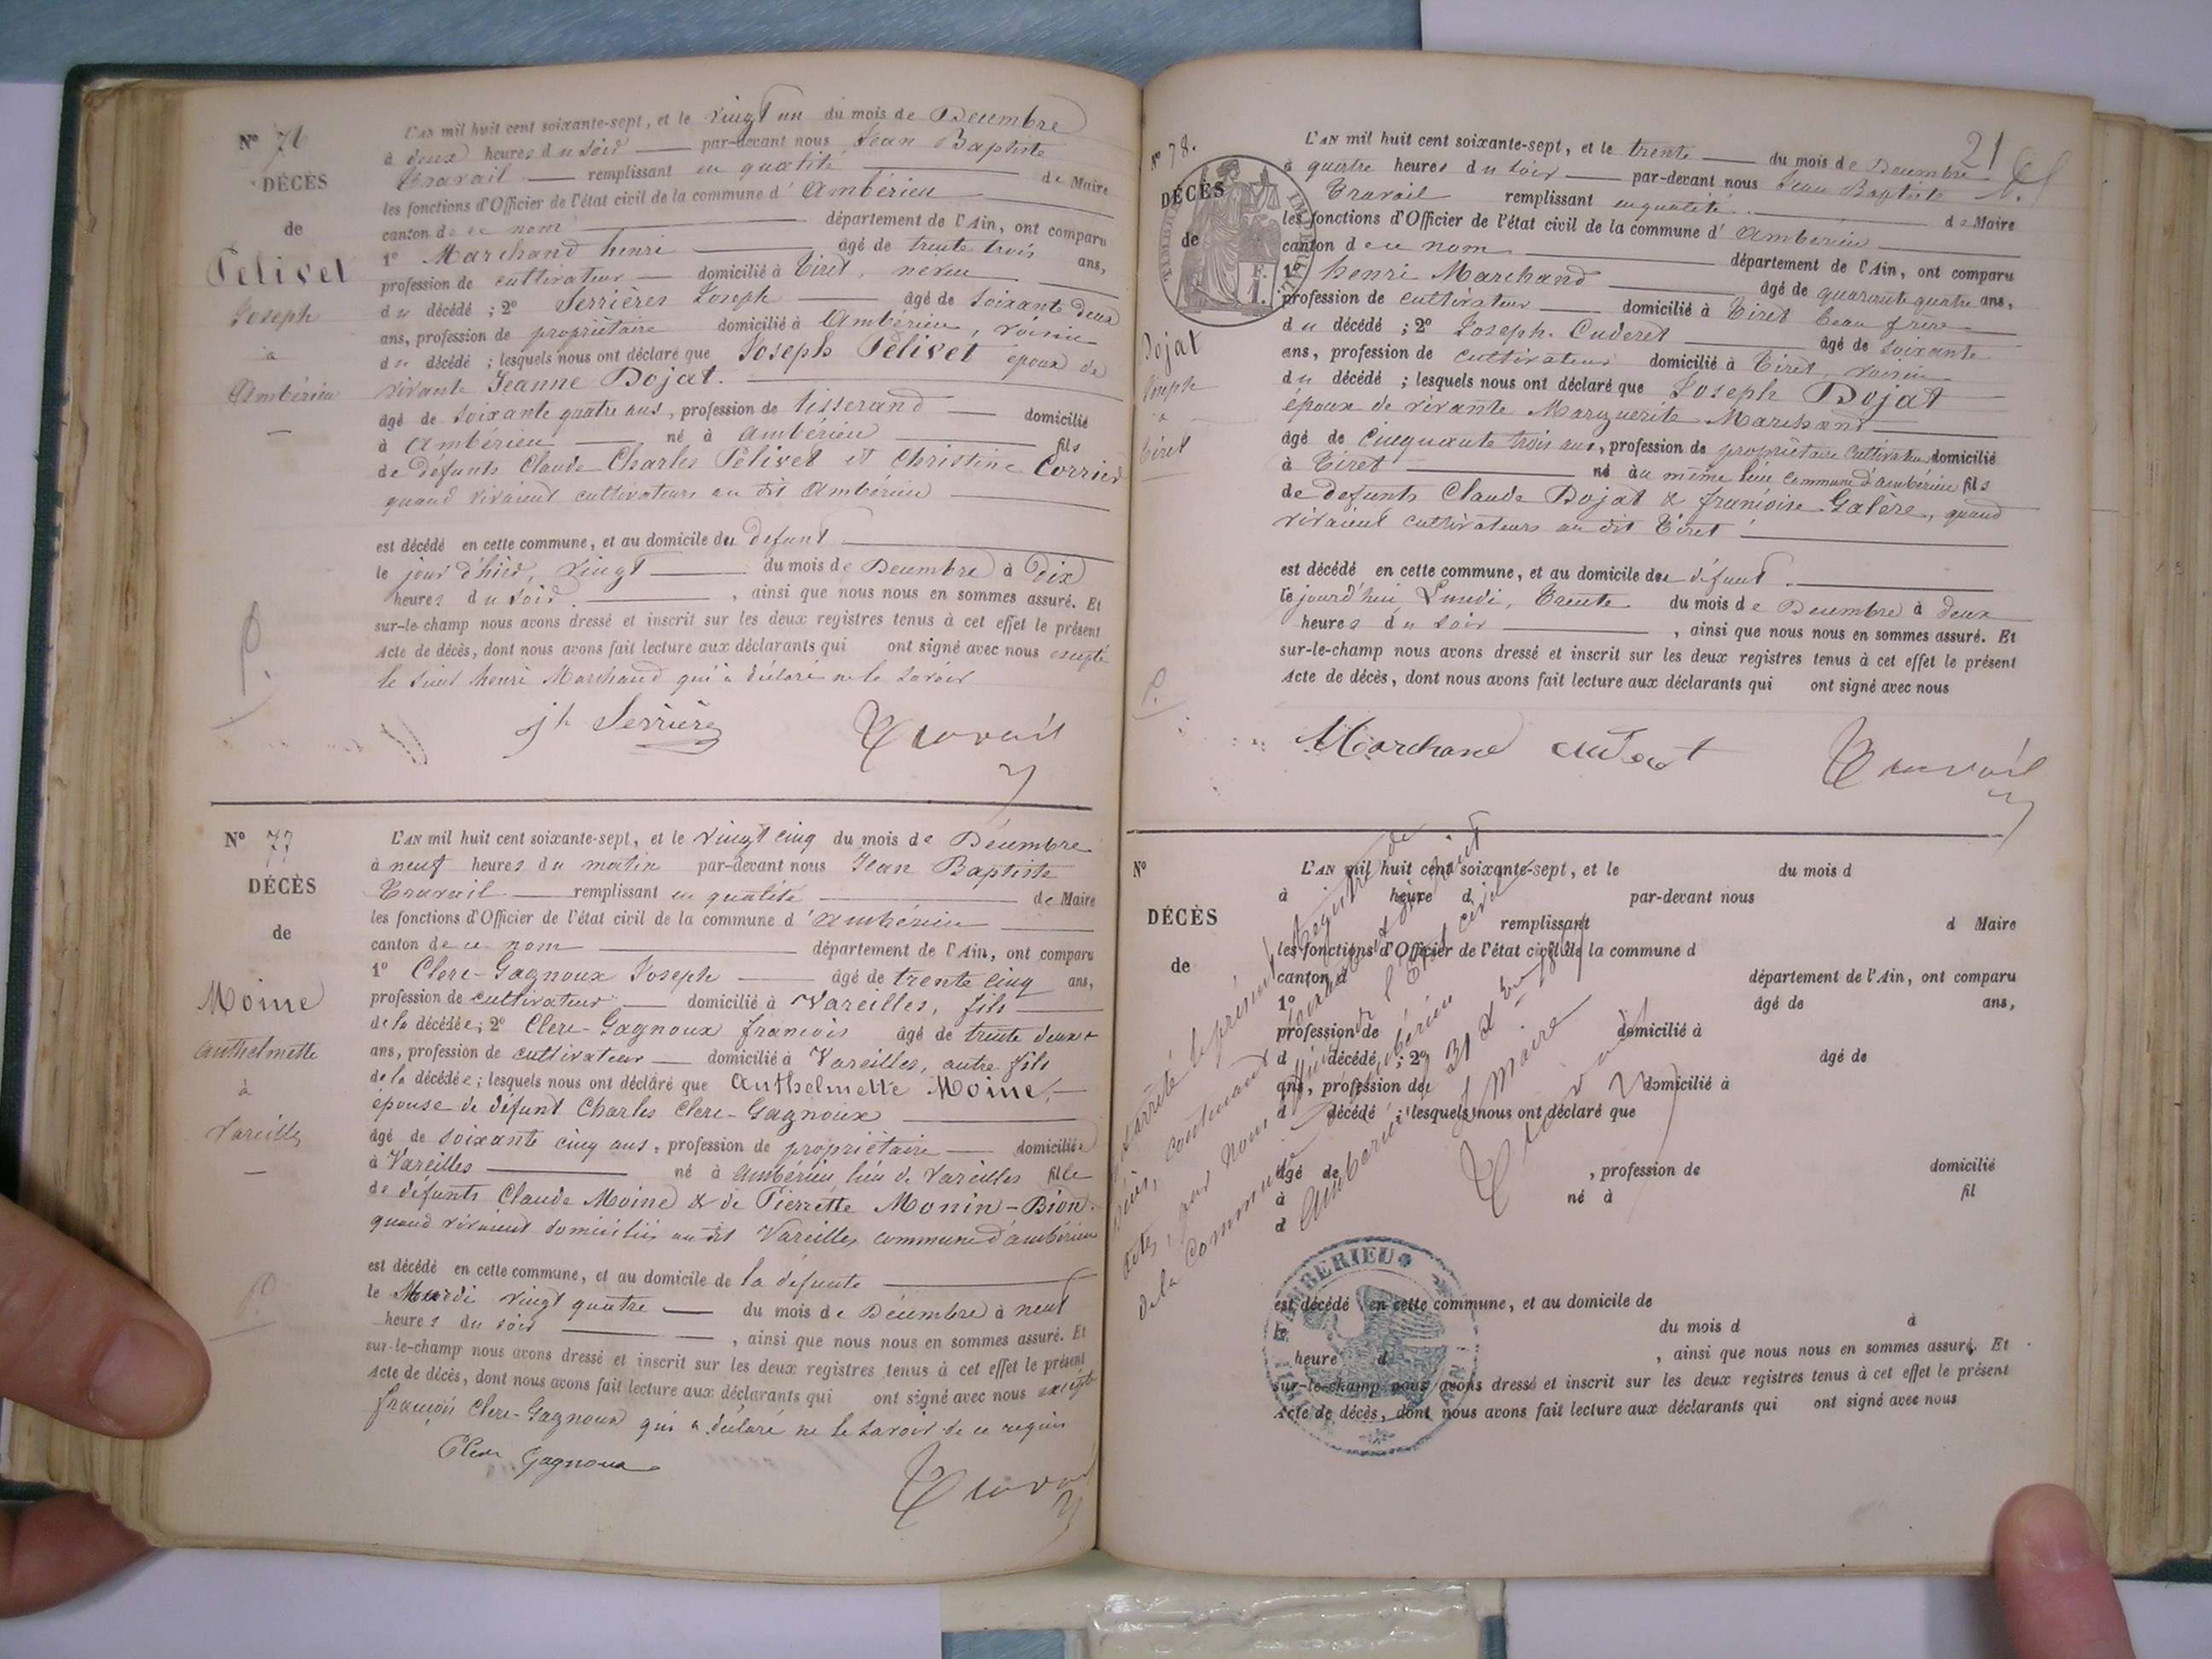 Nº 76
DÉCÈS
de
Pelivet
Joseph
à
Ambérieu
L'AN mil huit cent soixante-sept, et le vingt un du mois de Decembre
à deux heures du soir par-devant nous Jean Baptiste
Travail remplissant en qualité de Maire
les fonctions d'Officier de l'état civil de la commune d'Ambérieu
canton de ce nom département de l'Ain, ont comparu
1º Marchand henri âgé de trente trois ans,
profession de cultivateur domicilié à Tiret, neveu
du décédé ; 2º Serrières Joseph âgé de soixante deux
ans, profession de propriétaire domicilié à Ambérieu, voisin
du décédé ; lesquels nous ont déclaré que Joseph Pelivet époux de
vivante Jeanne Dojat.
âgé de soixante quatre ans, profession de tisserand domicilié
à Ambérieu né à Ambérieu fils
de défunts Claude Charles Pelivet et Christine Corrier
quand vivaient cultivateurs au dit Ambérieu
est décédé en cette commune, et au domicile du defunt
le jour d'hier, vingt du mois de Decembre à dix
heures du soir, ainsi que nous nous en sommes assuré. Et
sur-le-champ nous avons dressé et inscrit sur les deux registres tenus à cet effet le présent
Acte de décès, dont nous avons fait lecture aux déclarants qui ont signé avec nous excepté
le sieur henri Marchand qui a déclaré ne le savoir
jh Serrière Travail
Nº 77
DÉCÈS
de
Moine
Anthelmette
à
Vareilles
L'AN mil huit cent soixante-sept, et le vingt cinq du mois de Décembre
à neuf heures du matin par-devant nous Jean Baptiste
Travail remplissant en qualité de Maire
les fonctions d'Officier de l'état civil de la commune d'Ambérieu
canton de ce nom département de l'Ain, ont comparu
1º Clerc-Gagnoux Joseph âgé de trente cinq ans,
profession de cultivateur domicilié à Vareilles, fils
de la décédée; 2º Clerc-Gagnoux francois âgé de trente deux
ans, profession de cultivateur domicilié à Vareilles, autre fils
de la décédée; lesquels nous ont déclaré que Anthelmette Moine,
épouse de défunt Charles Clerc-Gagnoux
âgé de soixante cinq ans, profession de propriétaire domiciliée
à Vareilles né à Ambérieu, lieu de Vareilles fille
de défunts Claude Moine & de Pierrette Monin-Bion
quand vivaient domiciliés au dit Vareilles commune d'ambérieu
est décédé en cette commune, et au domicile de la défunte
le Mardi vingt quatre du mois de Décembre à neuf
heures du soir, ainsi que nous nous en sommes assuré. Et
sur-le-champ nous avons dressé et inscrit sur les deux registres tenus à cet effet le présent
Acte de décès, dont nous avons fait lecture aux déclarants qui ont signé avec nous excepté
françois Clerc-Gagnoux qui a déclaré ne le savoir de ce requis
Clerc Gagnoux Travail
21
Nº 78.
DÉCÈS
de
Dojat
Joseph
à
Tiret
L'AN mil huit cent soixante-sept, et le trente du mois de Decembre
à quatre heures du soir par-devant nous Jean Baptiste
Travail remplissant en qualité de Maire
les fonctions d'Officier de l'état civil de la commune d'Ambérieu
canton de ce nom département de l'Ain, ont comparu
1º henri Marchand âgé de quarante quatre ans,
profession de cultivateur domicilié à Tiret beau frère
du décédé ; 2º Joseph Cuderet âgé de soixante
ans, profession de cultivateur domicilié à Tiret, voisin
du décédé ; lesquels nous ont déclaré que Joseph Dojat
époux de vivante Marguerite Marchand
âgé de cinquante trois ans, profession de propriétaire cultivateur domicilié
à Tiret né au même lieu commune d'ambérieu fils
de defunts Claude Dojat & françoise Galère, quand
vivaient cultivateurs au dit Tiret
est décédé en cette commune, et au domicile du défunt
le jourd'hui Lundi, Trente du mois de Decembre à deux
heures du soir, ainsi que nous nous en sommes assuré. Et
sur-le-champ nous avons dressé et inscrit sur les deux registres tenus à cet effet le présent
Acte de décès, dont nous avons fait lecture aux déclarants qui ont signé avec nous
Marchand Travail
Nº
DÉCÈS
de
L'AN mil huit cent soixante-sept, et le du mois d
à heure d par-devant nous
remplissant d Maire
les fonctions d'Officier de l'état civil de la commune d
canton d département de l'Ain, ont comparu
1º âgé de ans,
profession de domicilié à
d décédé ; 2º âgé de
ans, profession de domicilié à
d décédé ; lesquels nous ont déclaré que
âgé de , profession de domicilié
à né à fil
d
est décédé en cette commune, et au domicile de
le du mois d à
heure d , ainsi que nous nous en sommes assuré. Et
sur-le-champ nous avons dressé et inscrit sur les deux registres tenus à cet effet le présent
Acte de décès, dont nous avons fait lecture aux déclarants qui ont signé avec nous
arrêté le présent Registre de
décès, contenant soixante dix huit
actes, par nous officier de l'Etat civil
de la Commune d'Ambérieu
Ambérieu le 31 Xbre
Le Maire
Travail
AMBERIEU